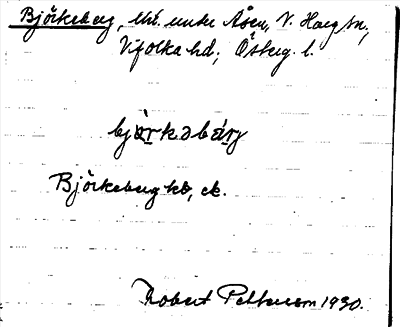 Björkeberg, lht. under Åsen, V. Harg sn,
Vifolka hd; Österg. l.
bjö̀rkəbærj
Björkeberg kb, ek.
Robert Pettersson 1930.